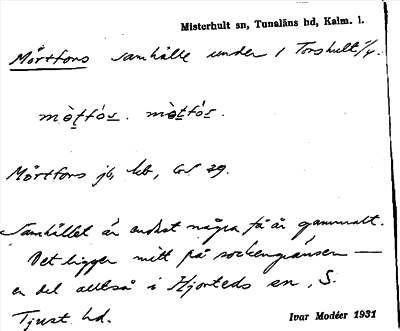 Misterhult sn, Tunaläns hd, Kalm. l.
Mörtfors samhälle under 1 Torshult 1/4.
mò̀tfó̀s. mò̀tfó̀s.
Mörtfors jb, kb, GS 29.
Samhället är endast några få år gammalt.
Det ligger mitt på sockengränsen —
en del alltså i Hjorteds sn, S.
Tjust hd.
Ivar Modéer 1931